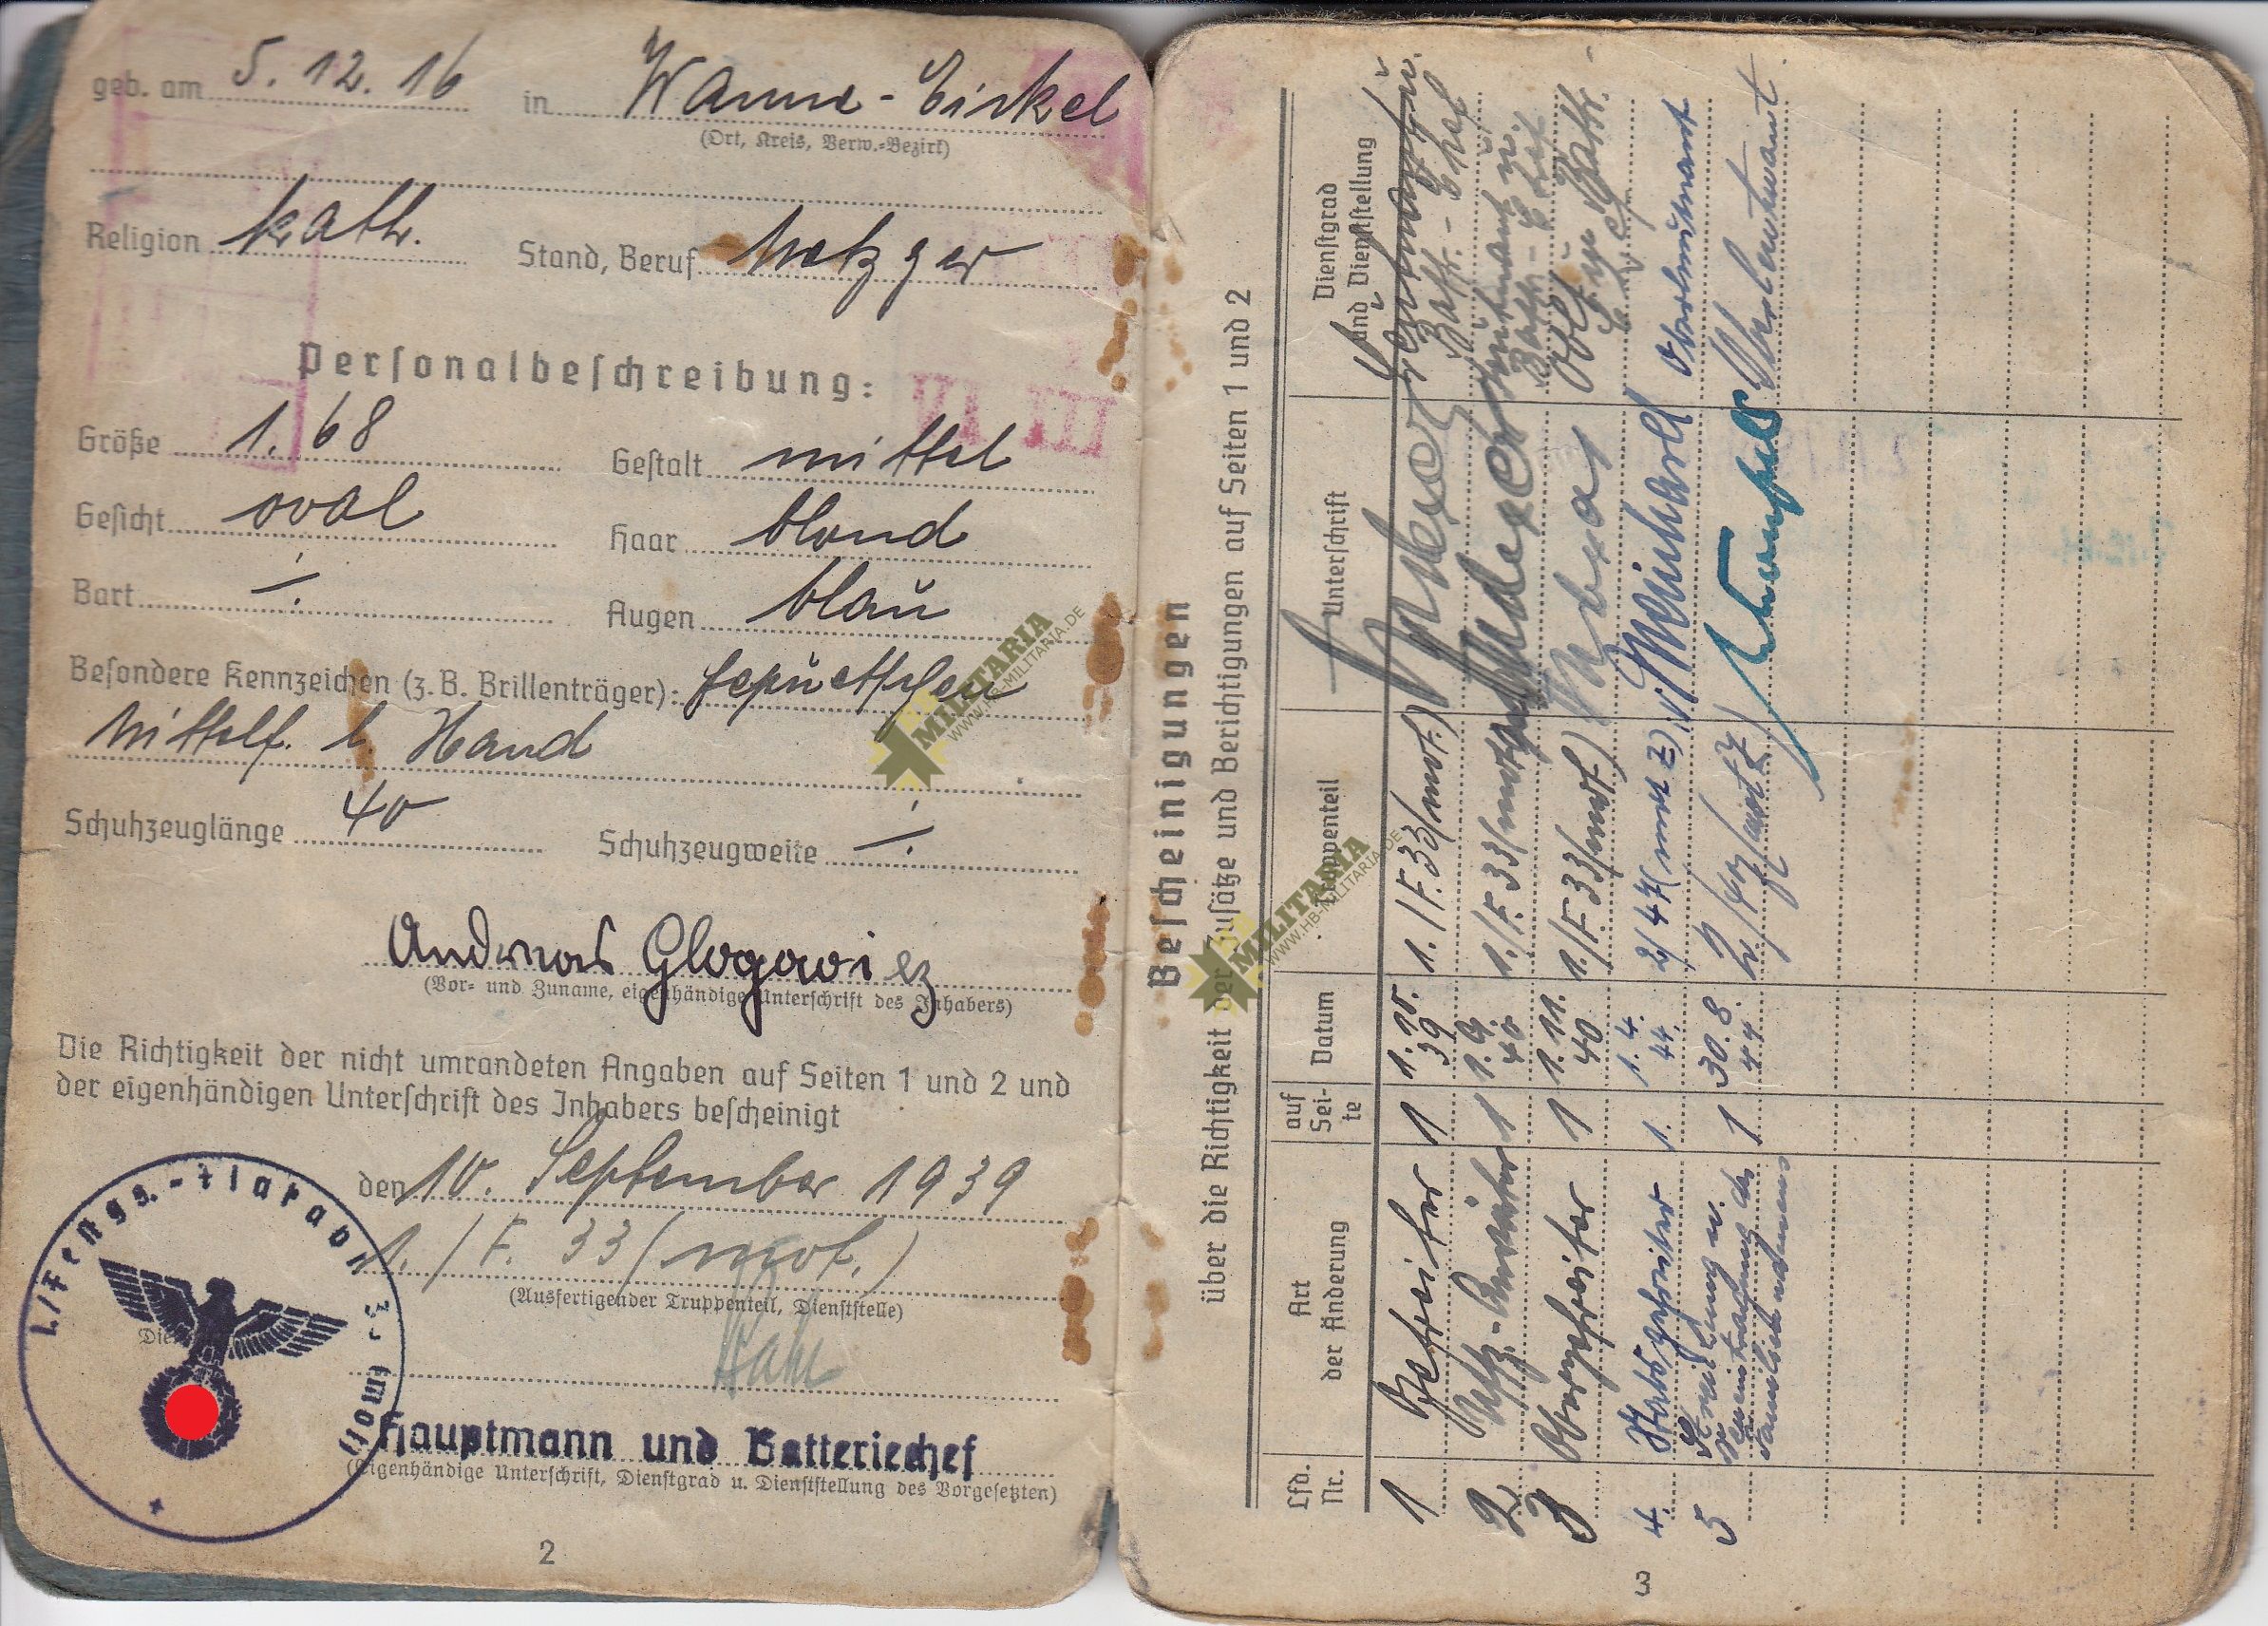 geb. am 5. 12. 16 in Wanne-Eickel
(Ort, Kreis, Verw.-Bezirk)
Religion kath. Stand, Beruf Metzger
Personalbeschreibung:
Größe 1.68 Gestalt mittel
Gesicht oval Haar blond
Bart ./. Augen blau
Besondere Kennzeichen (z.B. Brillenträger):
Mittelf. l. Hand
Schuhzeuglänge 40 Schuhzeugweite ./.
Andreas Glogowiez
(Vor- und Zuname, eigenhändige Unterschrift des Inhabers)
Die Richtigkeit der nicht umrandeten Angaben auf Seiten 1 und 2 und
der eigenhändigen Unterschrift des Inhabers bescheinigt
den 10. September 1939
1. / F. 33 (mot.)
(Ausfertigender Truppenteil, Dienststelle)
Hauptmann und Batteriechef
(Eigenhändige Unterschrift, Dienstgrad u. Dienststellung des Vorgesetzten)
2
MILITARIA
WWW.HB-MILITARIA.DE
Bescheinigungen
über die Richtigkeit der Zusätze und Berichtigungen auf Seiten 1 und 2
Lfd. Nr. Art der Änderung auf Sei-te Datum Truppenteil Unterschrift Dienstgrad und Dienststellung
1 Gefreiter 1 1. 10. 39 1./F. 33 (mot.) Batt.-Chef
2 Uffz.-Anwärter 1 1. 9. 40 1./F. 33 (mot.) Leutnant u. Batt.-Chef
3 Obergefreiter 1 1. 11. 40 1./F. 33 (mot.)
4. Stabsgefreiter 1. 1. 4. 44. 2/47 (mot Z) Meinhardt Oberleutnant
5 Streichung u. Neueintragung des Familiennamens 1 30. 8. 44 Oberleutnant
3
MILITARIA
WWW.HB-MILITARIA.DE